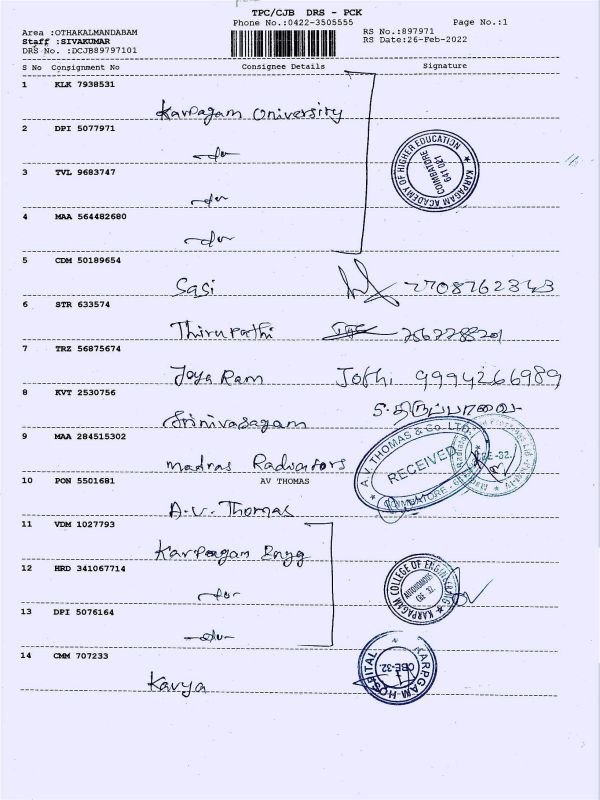 TPC/CJB DRS - PCK
Phone No.:0422-3505555
Page No.:1
Area :OTHAKALMANDABAM
RS No.:897971
Staff :SIVAKUMAR
RS Date:26-Feb-2022
DRS No. :DCJB89797101
S No Consignment No Consignee Details Signature
1 KLK 7938531
Karpagam University
2 DPI 5077971
-do-
3 TVL 9683747
-do-
4 MAA 564482680
-do-
KARPAGAM ACADEMY OF HIGHER EDUCATION
COIMBATORE
641 021
5 CDM 50189654
Sasi 7708762343
6 STR 633574
Thirupathi
7 TRZ 56875674
Jaya Ram Jothi 9994266989
8 KVT 2530756
Srinivasagam
9 MAA 284515302
Madras Radiators
10 PON 5501681 AV THOMAS
A.V. Thomas
A.V. THOMAS & Co. LTD.
RECEIVED
COIMBATORE
CBE-32.
11 VDM 1027793
Karpagam Engg
12 HRD 341067714
-do-
13 DPI 5076164
-do-
KARPAGAM COLLEGE OF ENGINEERING
AUTONOMOUS
CBE 32.
14 CMM 707233
Kavya
KARPAGAM HOSPITAL
CBE-32.